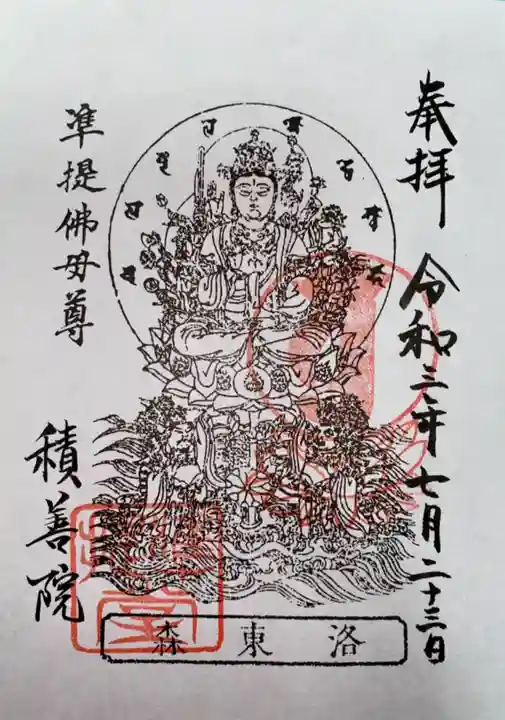 奉拝 令和三年七月二十三日
準提佛母尊
積善院
洛東森